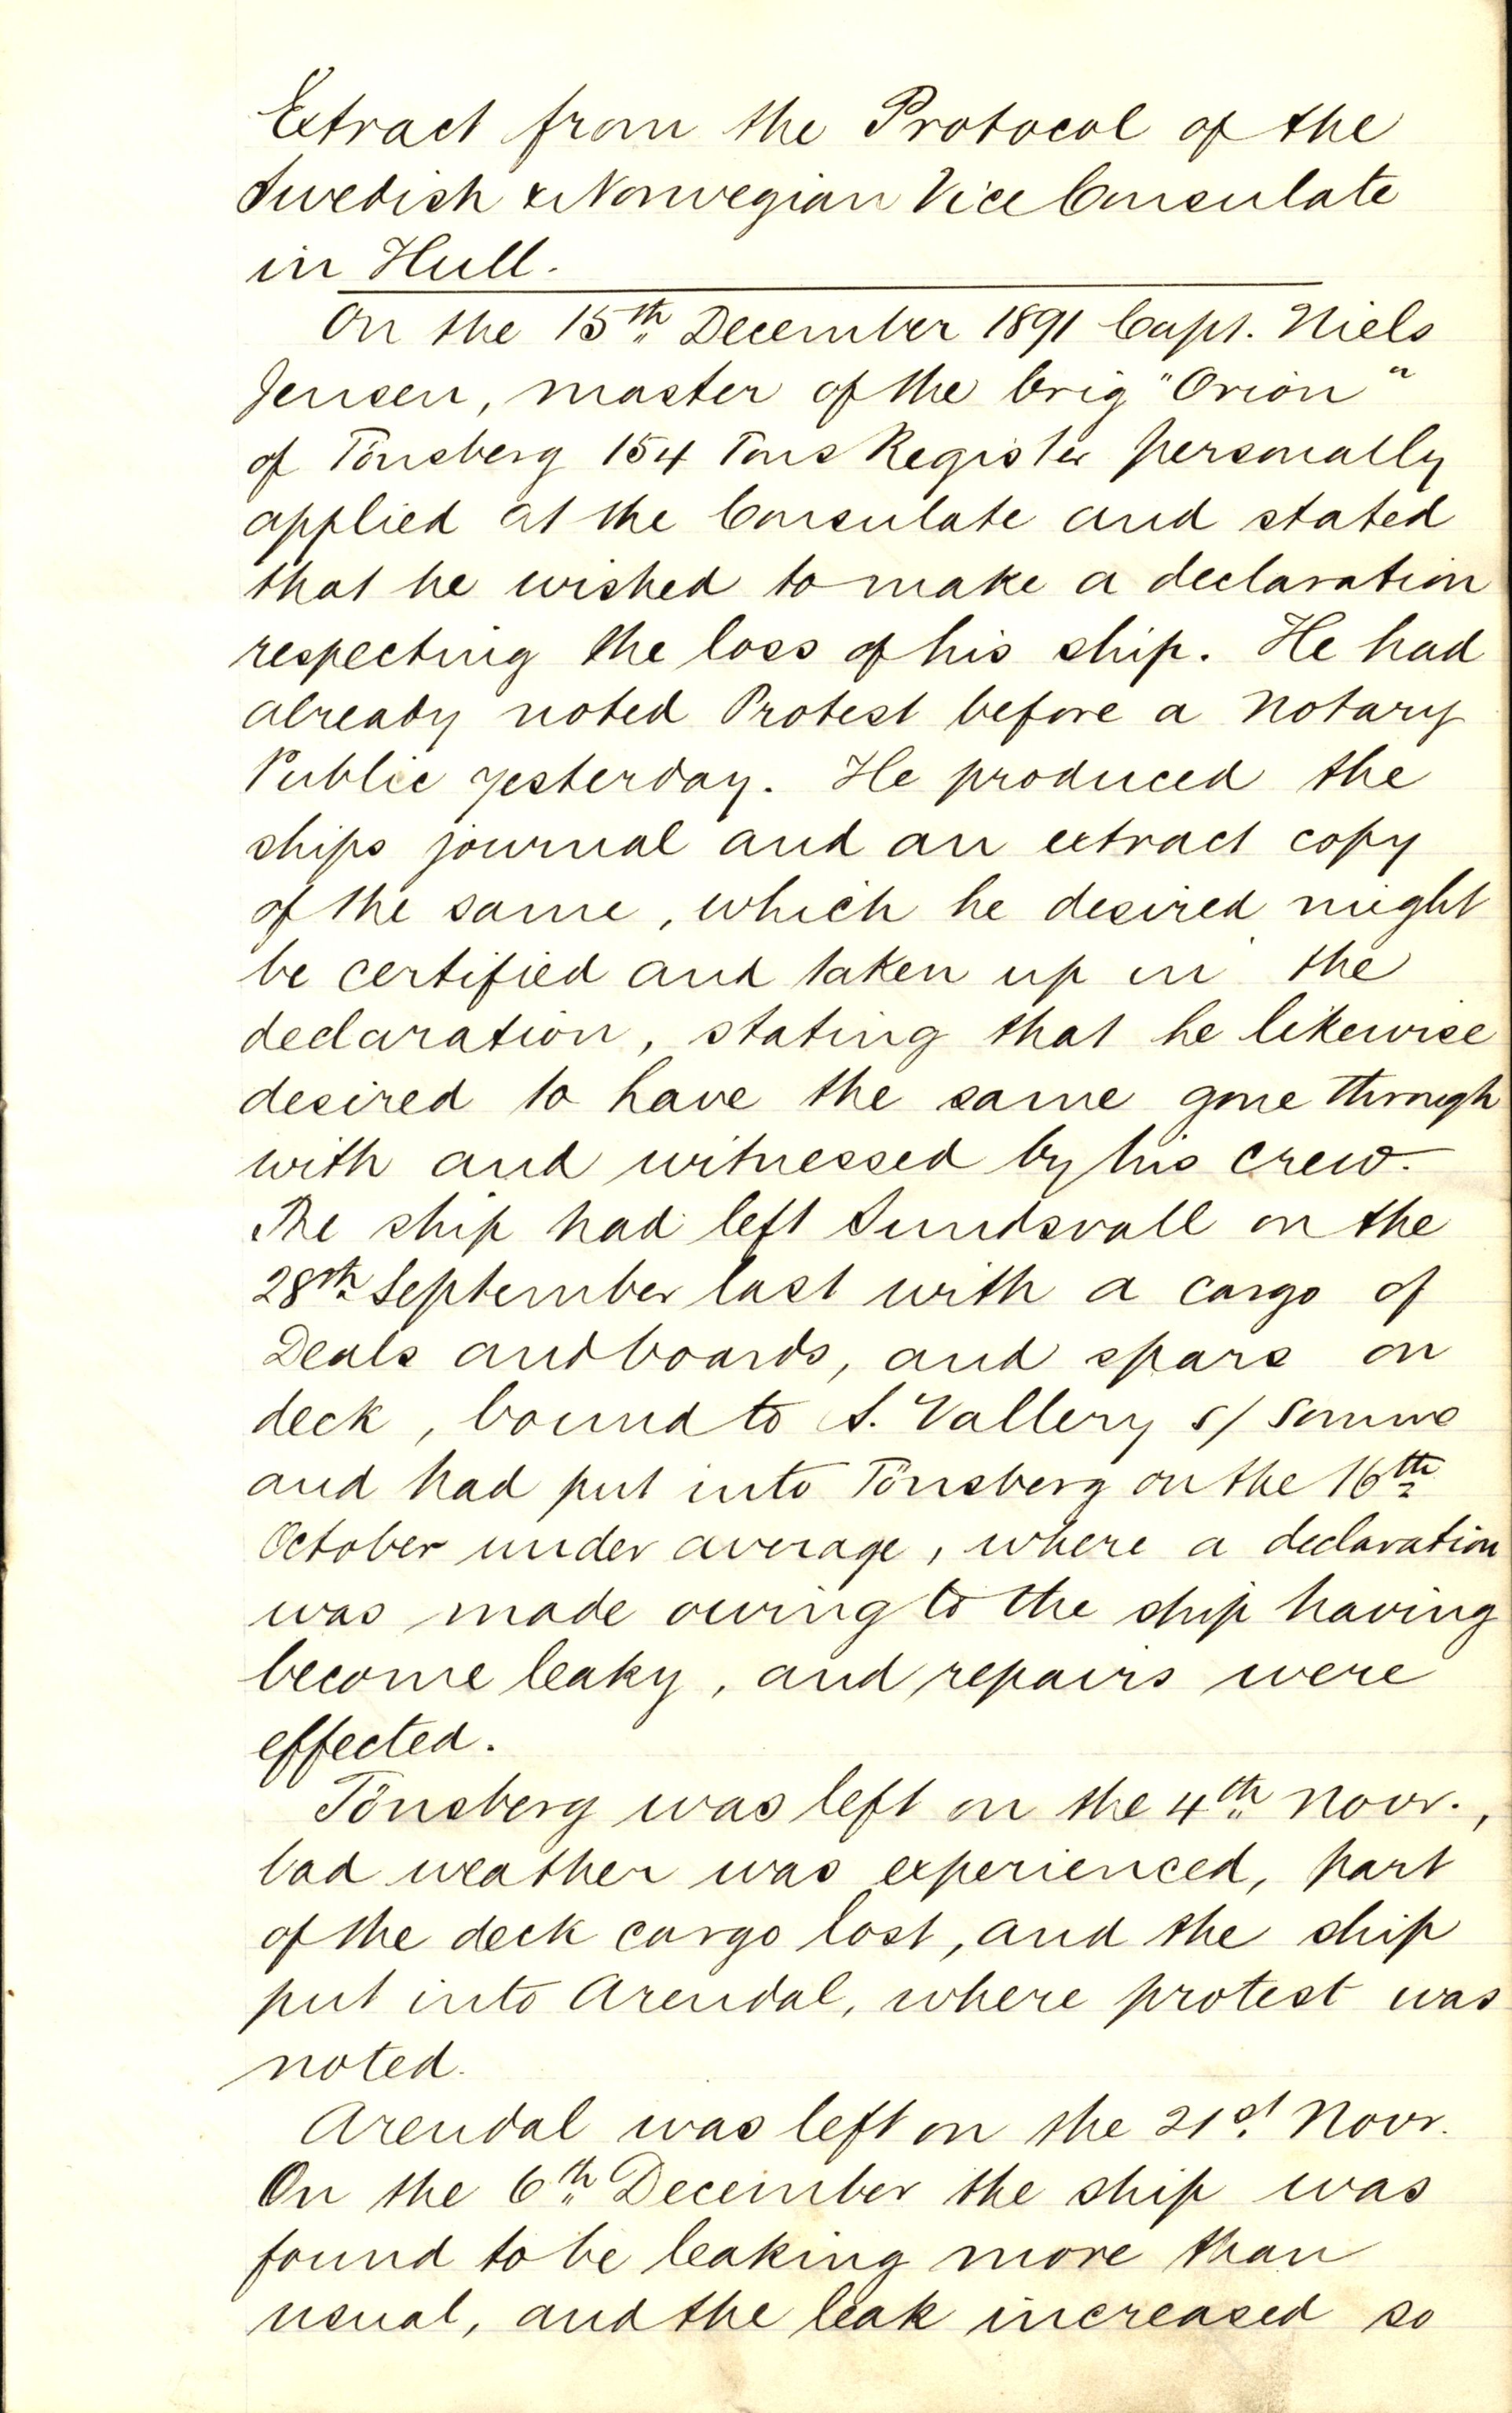 Extract from the Protocol of the
Swedish & Norwegian Vice Consulate
in Hull.
On the 15th December 1891 Capt. Niels
Jensen, master of the brig "Orion"
of Tönsberg 154 Tons Register personally
applied at the Consulate and stated
that he wished to make a declaration
respecting the loss of his ship. He had
already noted Protest before a Notary
Public yesterday. He produced the
ships journal and an extract copy
of the same, which he desired might
be certified and taken up in the
declaration, stating that he likewise
desired to have the same gone through
with and witnessed by his crew.
The ship had left Sundsvall on the
28th September last with a cargo of
Deals and boards, and spars on
deck, bound to S. Vallery s/ Somme
and had put into Tönsberg on the 16th
October under average, where a declaration
was made owing to the ship having
become leaky, and repairs were
effected.
Tönsberg was left on the 4th Novr.,
bad weather was experienced, part
of the deck cargo lost, and the ship
put into Arendal, where protest was
noted.
Arendal was left on the 21st Novr.
On the 6th December the ship was
found to be leaking more than
usual, and the leak increased so